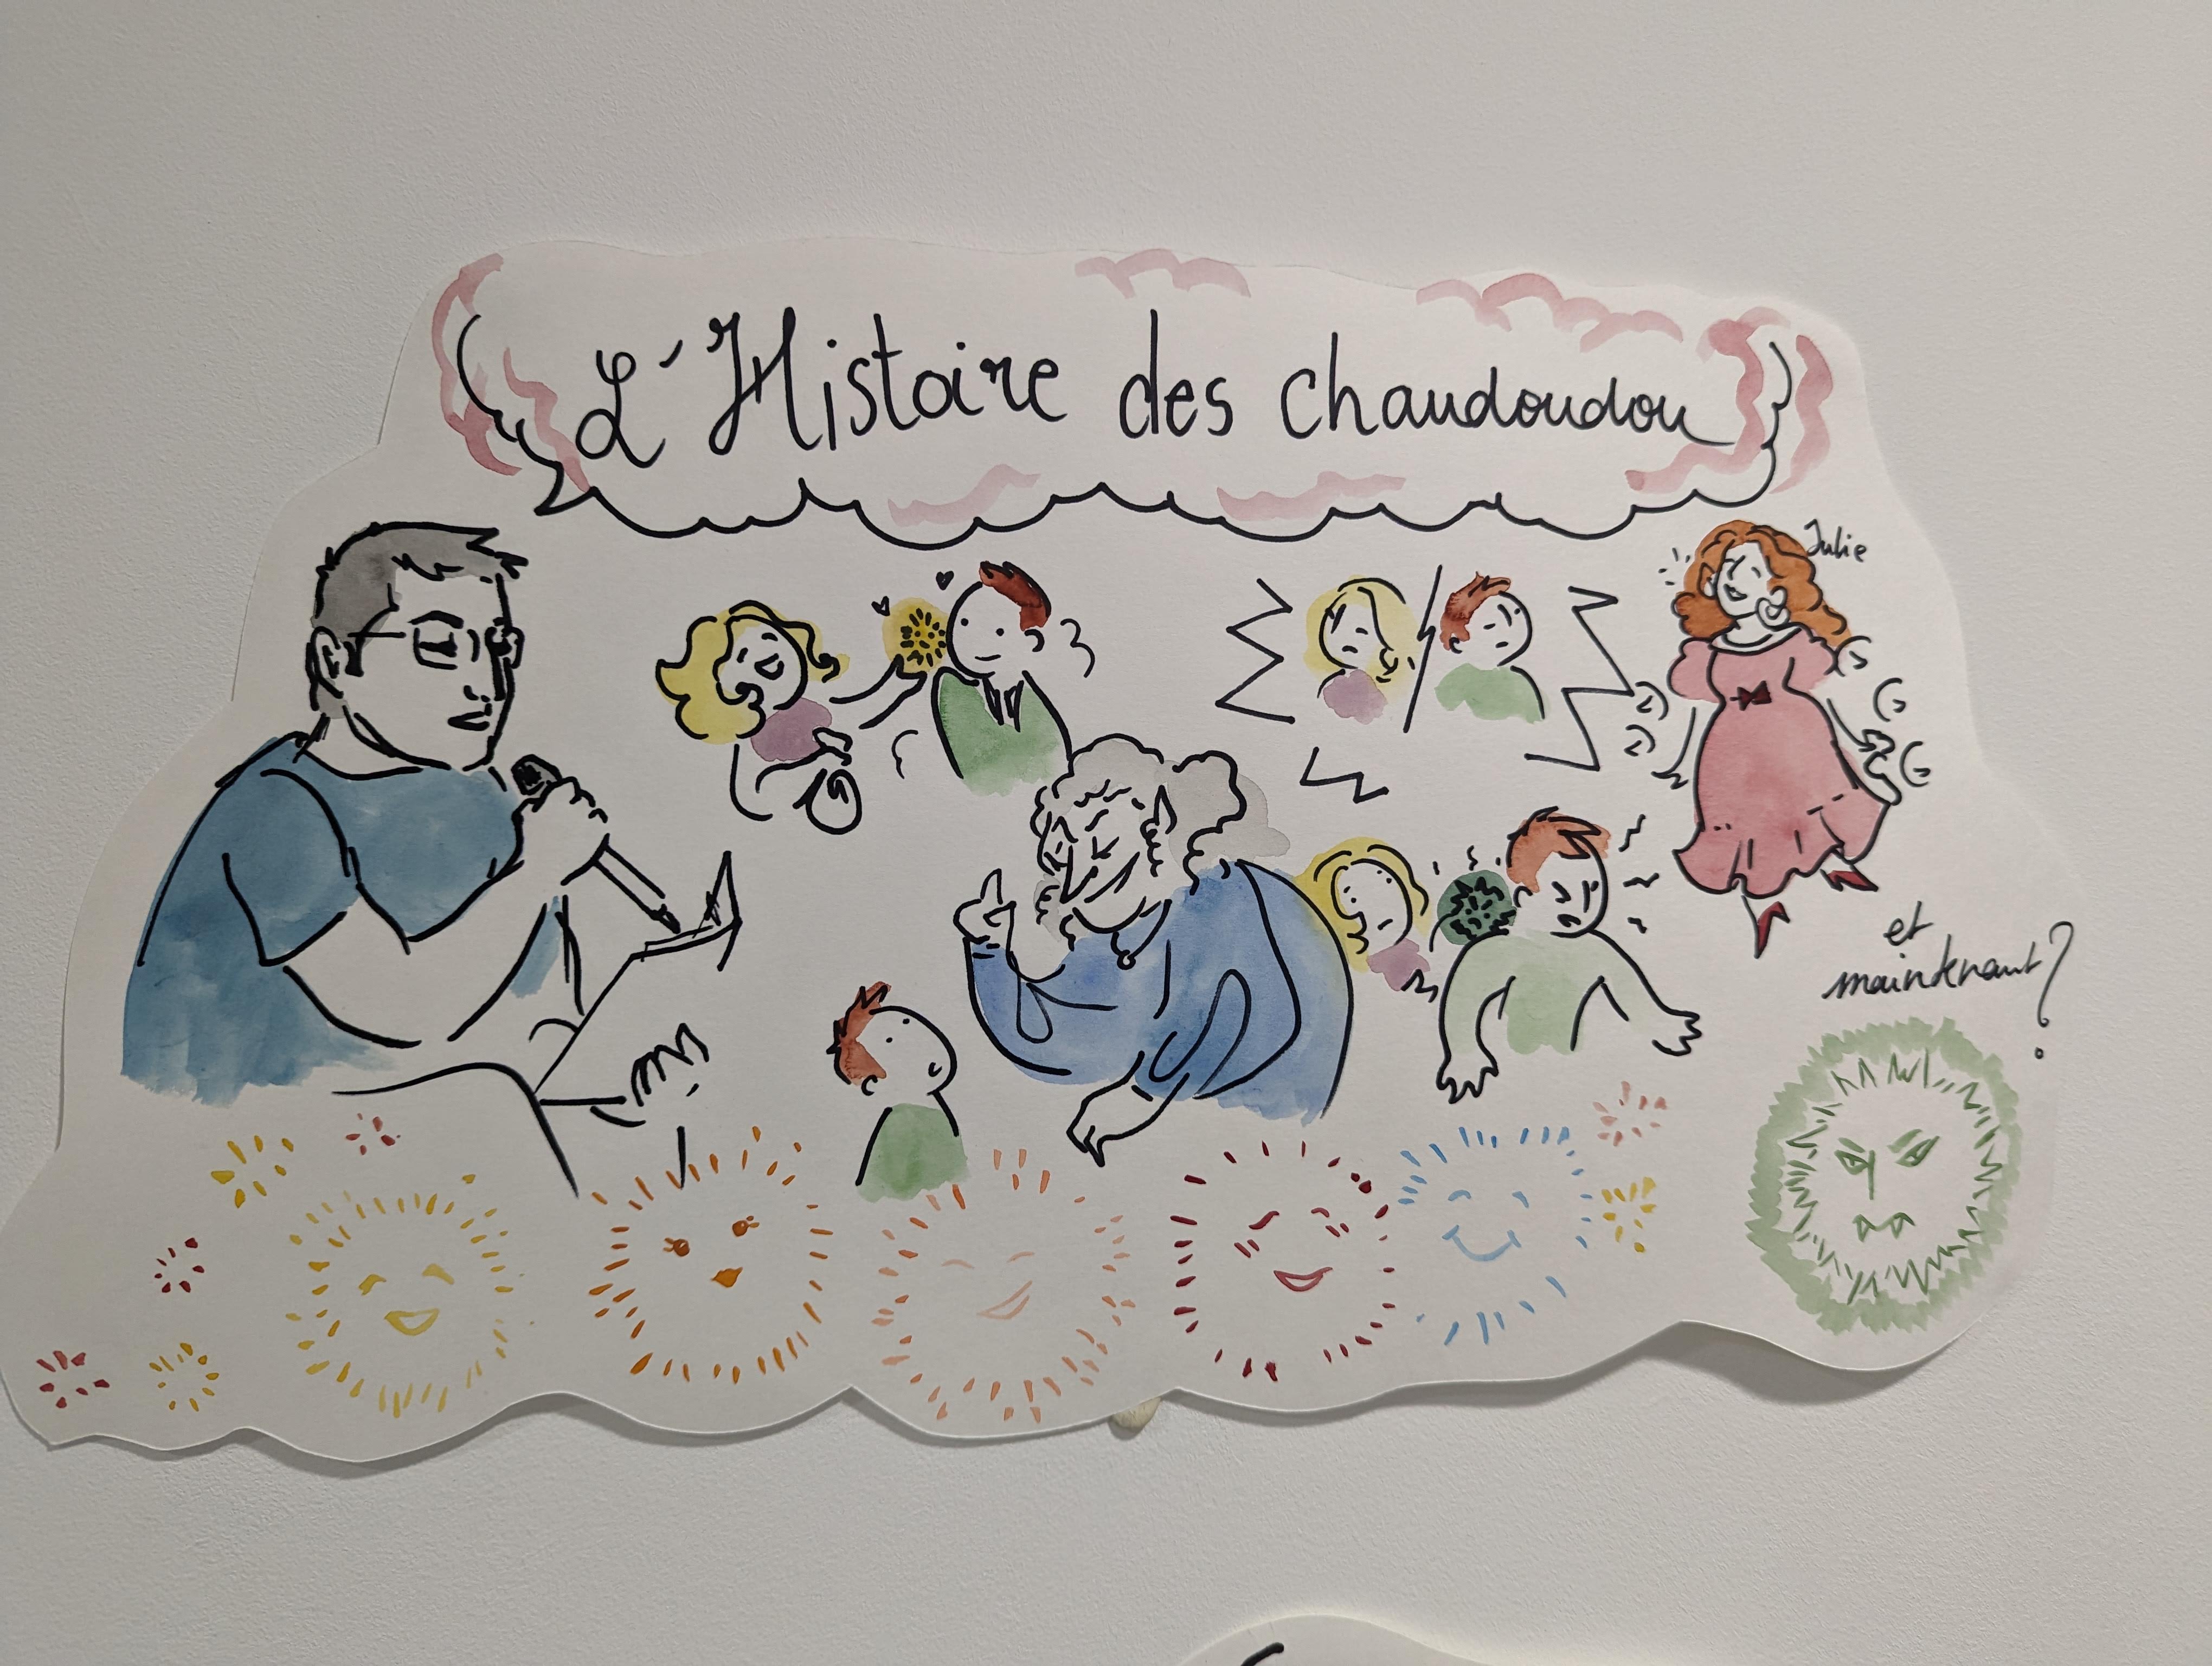 L'Histoire des chaudoudou
Julie
et
maintenant ?